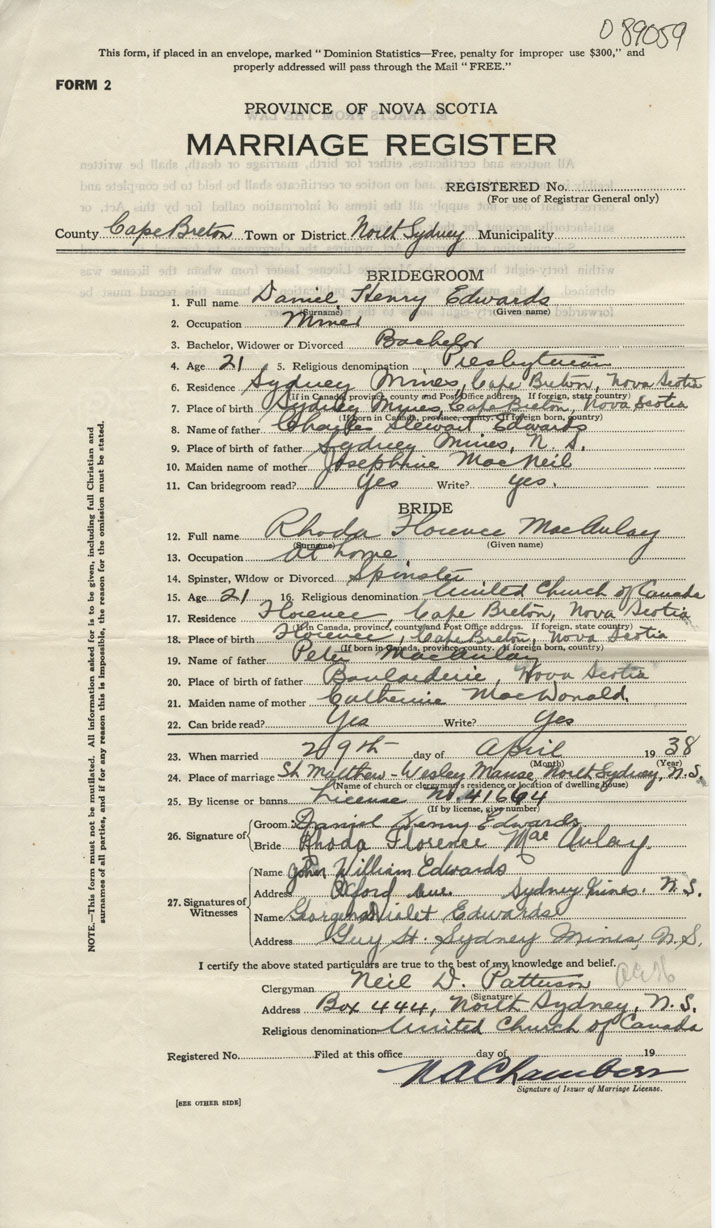 089059
This form, if placed in an envelope, marked "Dominion Statistics—Free, penalty for improper use $300," and
properly addressed will pass through the Mail "FREE."
FORM 2
PROVINCE OF NOVA SCOTIA
MARRIAGE REGISTER
REGISTERED No.
(For use of Registrar General only)
County Cape Breton Town or District North Sydney Municipality
BRIDEGROOM
1. Full name Daniel Henry Edwards
(Surname) (Given name)
2. Occupation Miner
3. Bachelor, Widower or Divorced Bachelor
4. Age 21 5. Religious denomination Presbyterian
6. Residence Sydney Mines, Cape Breton, Nova Scotia
(If in Canada, province, county and Post Office address. If foreign, state country)
7. Place of birth Sydney Mines, Cape Breton, Nova Scotia
(If born in Canada, province, county. If foreign born, country)
8. Name of father Charles Stewart Edwards
9. Place of birth of father Sydney Mines, N. S.
10. Maiden name of mother Josephine MacNeil
11. Can bridegroom read? Yes Write? yes.
BRIDE
12. Full name Rhoda Florence MacAulay
(Surname) (Given name)
13. Occupation At home
14. Spinster, Widow or Divorced Spinster
15. Age 21 16. Religious denomination United Church of Canada
17. Residence Florence, Cape Breton, Nova Scotia
(If in Canada, province, county and Post Office address. If foreign, state country)
18. Place of birth Florence, Cape Breton, Nova Scotia
(If born in Canada, province, county. If foreign born, country)
19. Name of father Peter MacAulay
20. Place of birth of father Boularderie, Nova Scotia
21. Maiden name of mother Catherine MacDonald
22. Can bride read? Yes Write? Yes
23. When married 29th day of April 1938
(Month) (Year)
24. Place of marriage St. Matthew-Wesley Manse, North Sydney, N.S.
(Name of church or clergyman's residence or location of dwelling house)
25. By license or banns License No. 41664
(If by license, give number)
26. Signature of
Groom Daniel Henry Edwards
Bride Rhoda Florence MacAulay.
27. Signatures of Witnesses
Name John William Edwards
Address Oxford Ave. Sydney Mines. N.S.
Name Georgena Violet Edwards
Address Guy St. Sydney Mines, N.S.
I certify the above stated particulars are true to the best of my knowledge and belief.
Clergyman Neil D. Patterson
(Signature)
Address Box 444, North Sydney, N.S.
Religious denomination United Church of Canada
Registered No. Filed at this office day of 19
N A Chambers
Signature of Issuer of Marriage License.
[SEE OTHER SIDE]
NOTE.—This form must not be mutilated. All information asked for is to be given, including full Christian and
surnames of all parties, and if for any reason this is impossible, the reason for the omission must be stated.